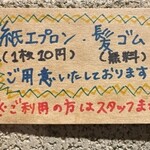 紙エプロン・髪ゴム
(1枚10円) (無料)
ご用意いたしております
ご利用の方はスタッフま